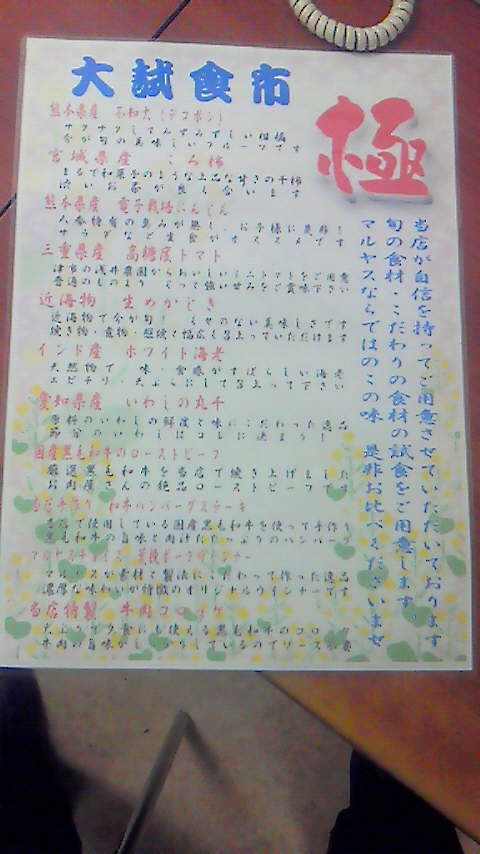 大試食市
極
当店が自信を持ってご用意させていただいております
旬の食材・こだわりの食材の試食をご用意します。
マルヤスならではのこの味 是非お比べくださいませ
熊本県産 不知火(デコポン)
サクサクしてみずみずしい柑橘
今が旬の美味しいフルーツです
宮城県産 ころ柿
まるで和菓子のような上品な甘さの干柿
渋いお茶が良く合います
熊本県産 電子栽培にんじん
人参特有の臭みが無く、お子様に最適!
サラダなど生食がオススメです
三重県産 高糖度トマト
津市の浅井農園からおいしいミニトマトをご用意
普通のものよりぐっと強い甘みをご賞味下さい
近海物 生めかじき
近海物で今が旬! くせのない美味しさです
焼き物・煮物・照焼と幅広く召上っていただけます
インド産 ホワイト海老
天然物で味・食感がすばらしい海老
エビチリ・天ぷらにして召上って下さい
愛知県産 いわしの丸干
原料のいわしの鮮度と味にこだわった逸品
節分のいわしはコレに決まり!
国産黒毛和牛のローストビーフ
厳選黒毛和牛を当店で焼き上げました
お肉屋さんの絶品ローストビーフです
当店手作り 和牛ハンバーグステーキ
当店で使用している国産黒毛和牛を使って手作り
黒毛和牛の旨味と肉汁たっぷりのハンバーグ
マルヤスチョイス 美稜ポークウインナー
マルヤスが素材と製法にこだわって作った逸品
濃厚な味わいが特徴のオリジナルウインナーです
当店特製 牛肉コロッケ
黒毛和牛のコロッケ
牛肉の旨味がしっかりしているのでソース不要